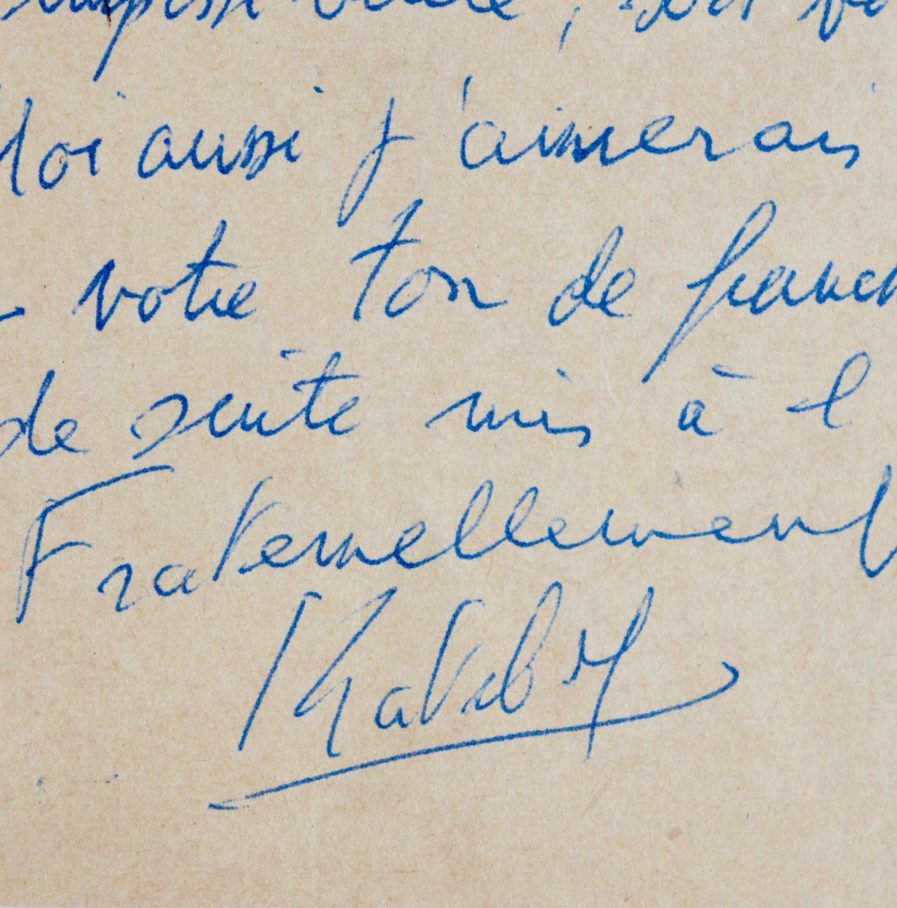 Moi aussi j'aimerais
votre ton de franch
de suite mis à l
Fraternellement
Kateb Y